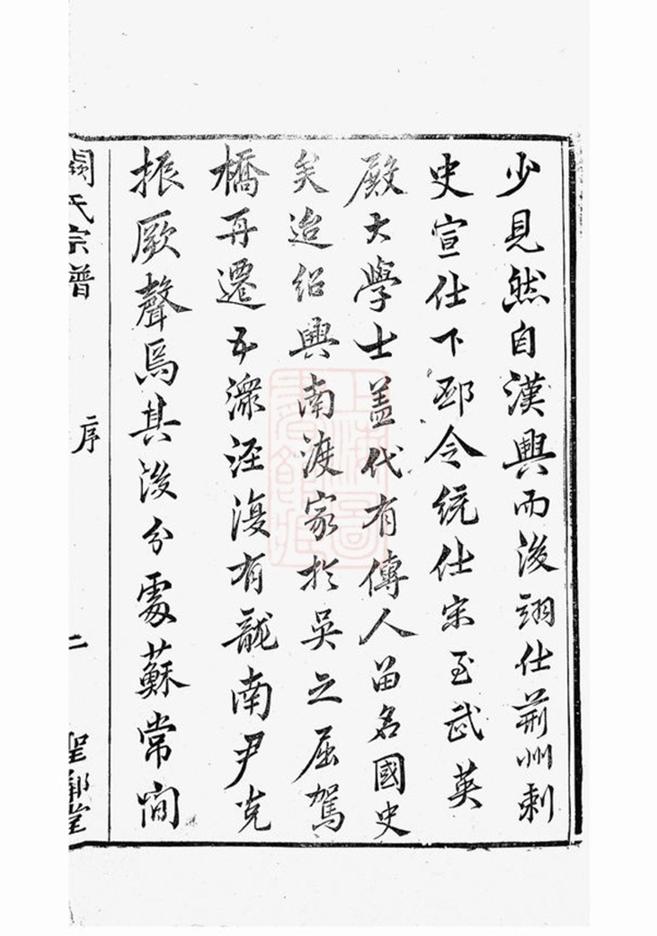 少見然自漢興而後翊仕荊州刺
史宣仕下邳令統仕宋至武英
殿大學士蓋代有傳人留名國史
矣迨紹興南渡家於吳之屈駕
橋再遷五潨泾復有龍南尹克
振厥聲焉其後分處蘇常間
闕氏宗譜
序
二
聖鄉堂
上海圖書館藏